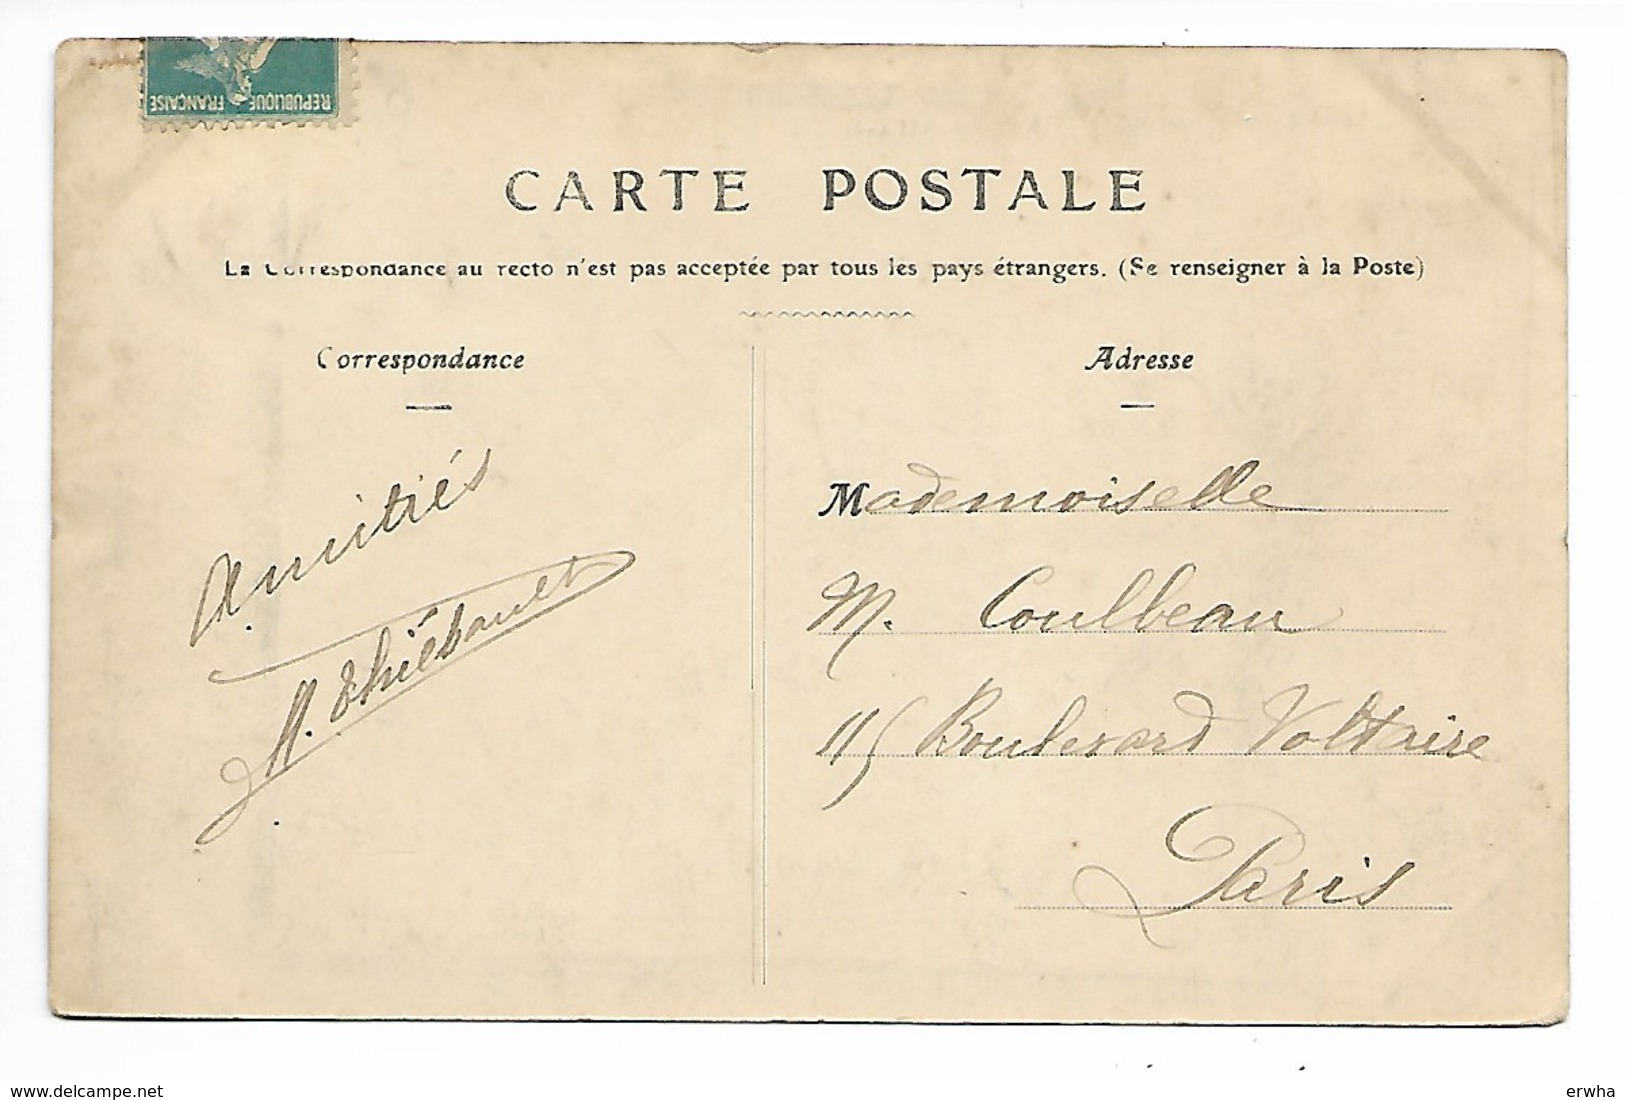 REPUBLIQUE FRANÇAISE
CARTE POSTALE
La Correspondance au recto n'est pas acceptée par tous les pays étrangers. (Se renseigner à la Poste)
Correspondance
Amitiés
M. Thiébault
Adresse
Mademoiselle
M. Coulbeau
115 Boulevard Voltaire
Paris
www.delcampe.net
erwha